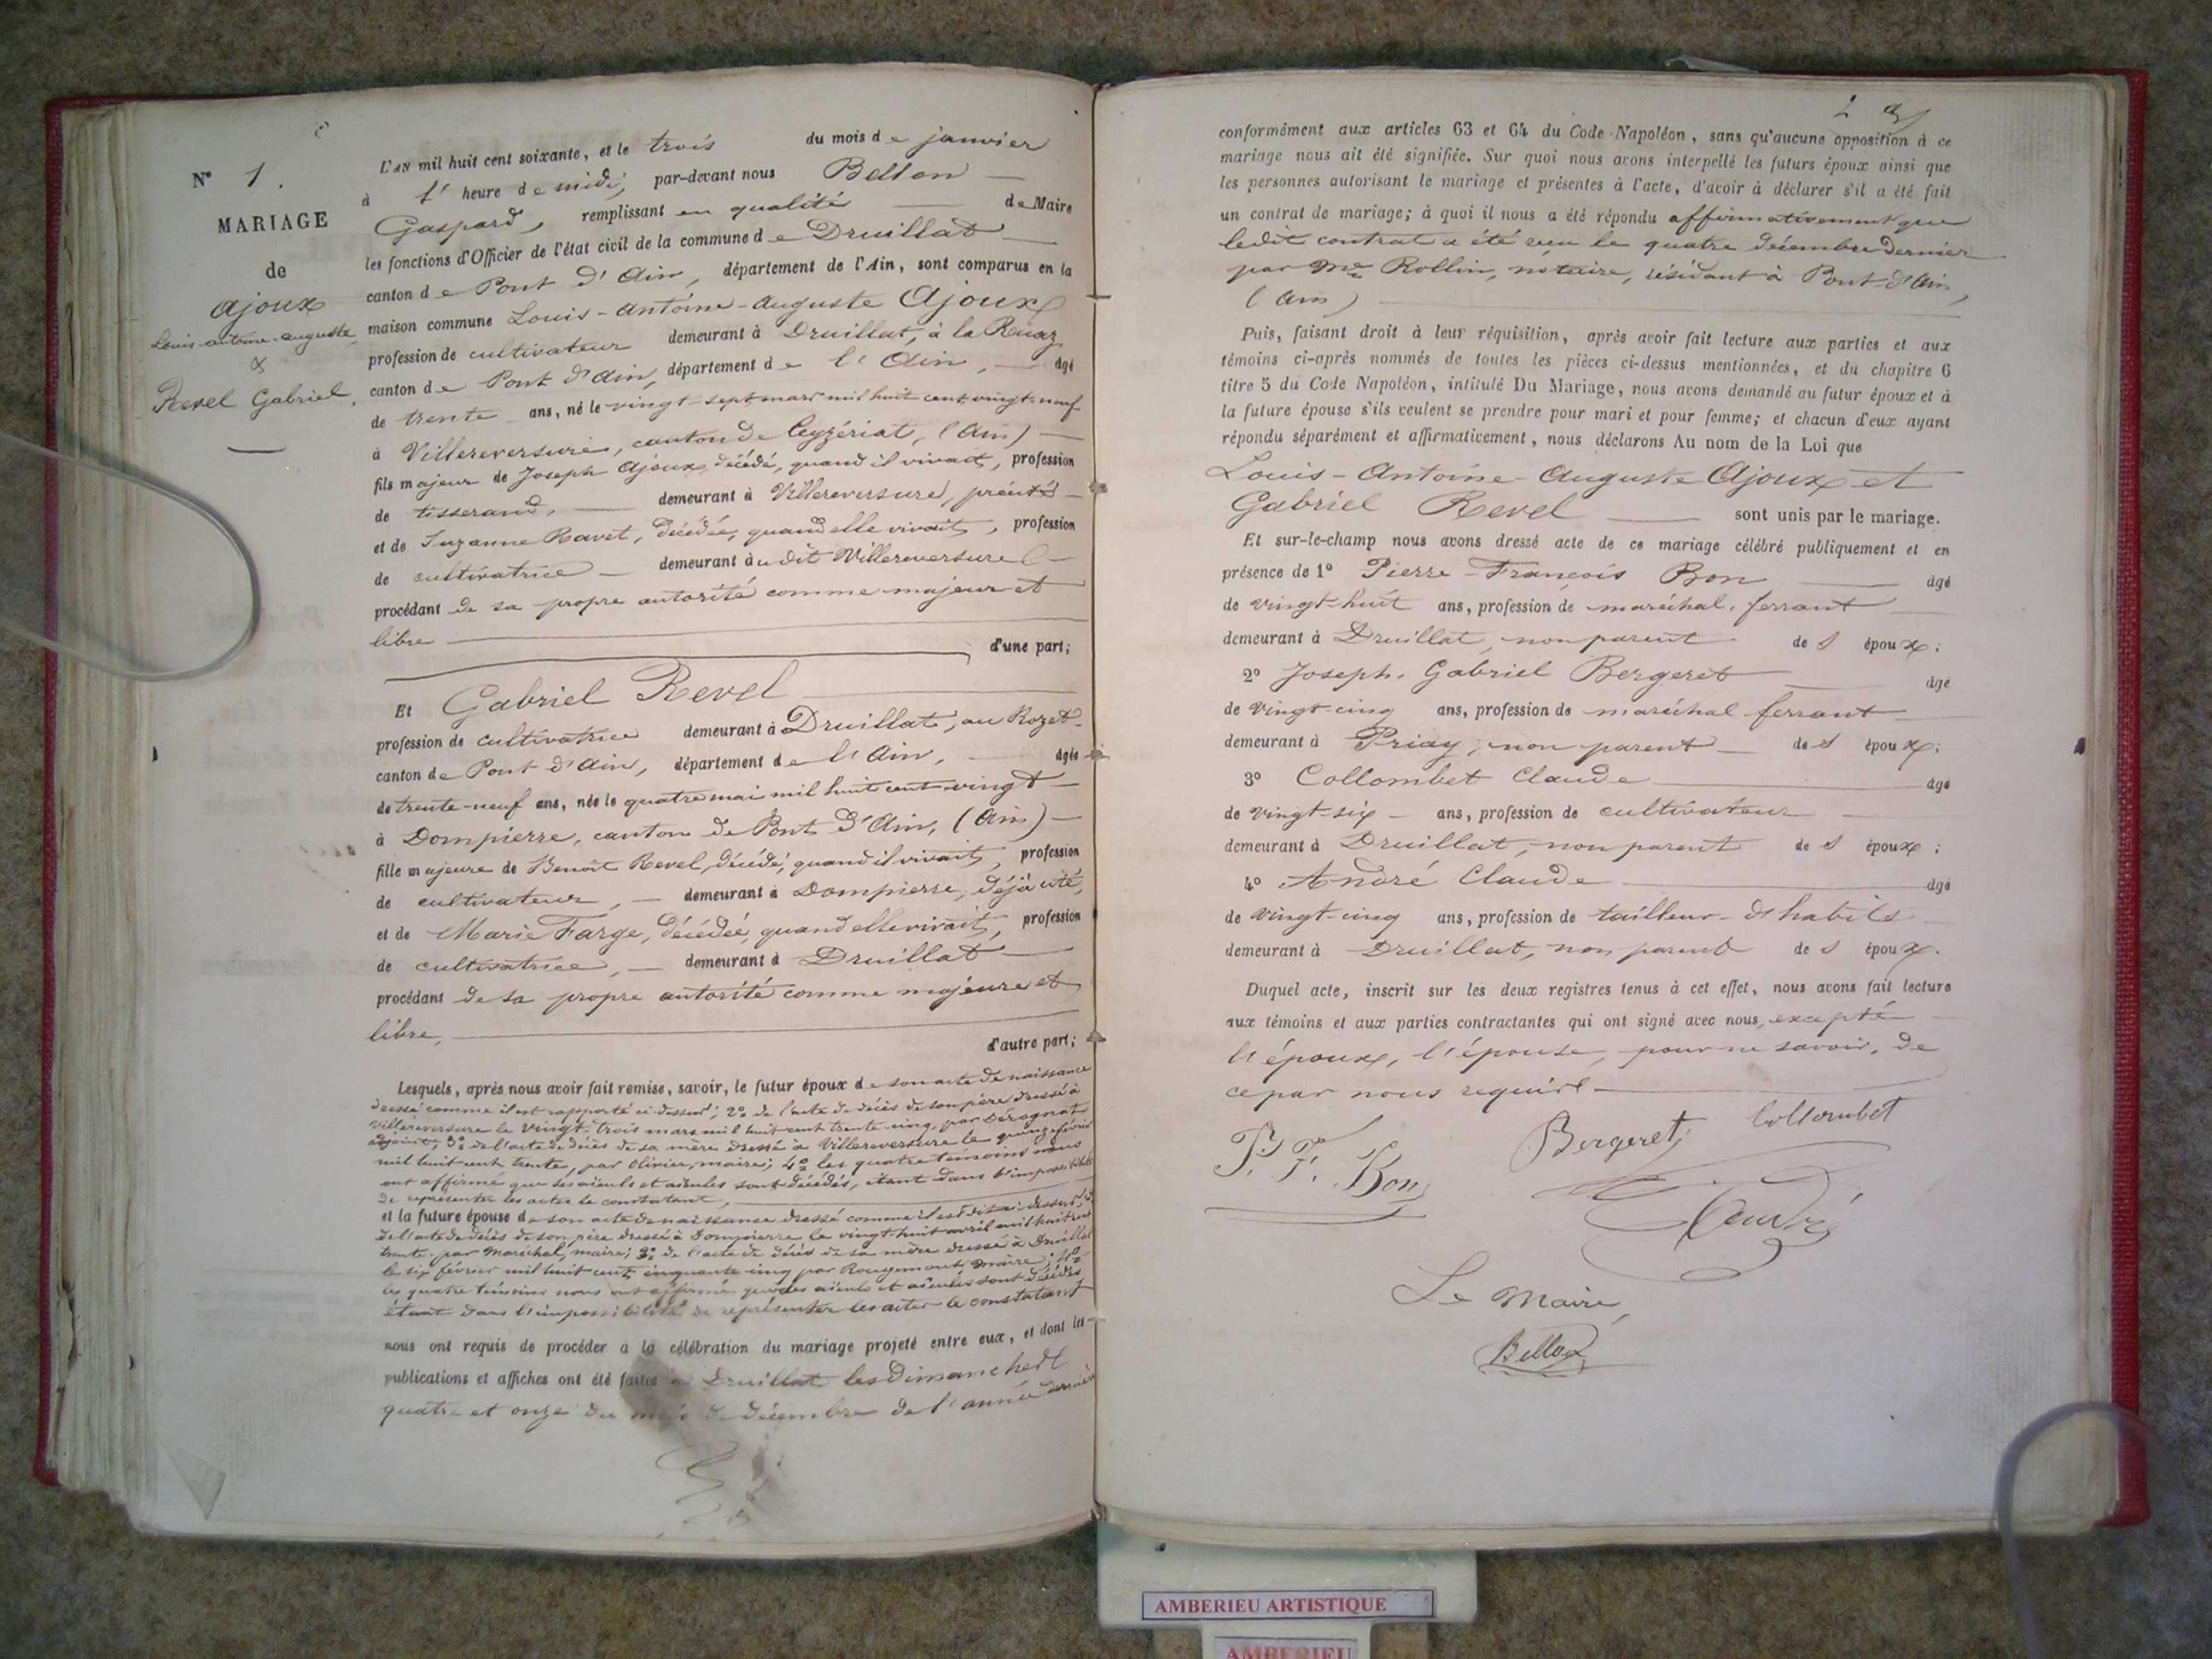 N° 1.
MARIAGE
de
Ajoux
Louis-Antoine-Auguste
&
Revel Gabriel.
L'AN mil huit cent soixante, et le trois du mois de janvier
à 1' heure de midi, par-devant nous Bellon
Gaspard, remplissant en qualité de Maire
les fonctions d'Officier de l'état civil de la commune de Druillat
canton de Pont d'Ain, département de l'Ain, sont comparus en la
maison commune Louis-Antoine-Auguste Ajoux
profession de cultivateur demeurant à Druillat, à la Ruaz
canton de Pont d'Ain, département de l'Ain, âgé
de trente ans, né le vingt-sept mars mil huit cent vingt-neuf
à Villereversure, canton de Ceyzériat, (Ain)
fils majeur de Joseph Ajoux, décédé, quand il vivait, profession
de tisserand, demeurant à Villereversure, précité
et de Suzanne Ravet, décédée, quand elle vivait, profession
de cultivatrice demeurant à udit Villereversure
procédant de sa propre autorité comme majeur et
libre d'une part;
Et Gabriel Revel
profession de cultivatrice demeurant à Druillat, au Rozet
canton de Pont d'Ain, département de l'Ain, âgée
de trente-neuf ans, née le quatre mai mil huit cent vingt
à Dompierre, canton de Pont d'Ain, (Ain)
fille majeure de Benoît Revel, décédé, quand il vivait, profession
de cultivateur, demeurant à Dompierre, déjà cité,
et de Marie Farge, décédée, quand elle vivait, profession
de cultivatrice, demeurant à Druillat
procédant de sa propre autorité comme majeure et
libre, d'autre part;
Lesquels, après nous avoir fait remise, savoir, le futur époux de son acte de naissance
dressé comme il est rapporté ci-dessus; 2° de l'acte de décès de son père dressé à
Villereversure le vingt-trois mars mil huit cent trente-cinq, par Dérognat
adjoint 3° de l'acte de décès de sa mère dressé à Villereversure le quinze février
mil huit cent trente, par Olivier, maire; 4° les quatre témoins nous
ont affirmé que ses aïeuls et aïeules sont décédés, étant dans l'impossibilité
de représenter les actes le constatant,
et la future épouse de son acte de naissance dressé comme il est dit ci-dessus; 2°
de l'acte de décès de son père dressé à Dompierre le vingt-huit avril mil huit cent
trente, par Maréchal, maire; 3° de l'acte de décès de sa mère dressé à Druillat
le six février mil huit cent cinquante cinq par Rougemont, maire; 4°
les quatre témoins nous ont affirmé que ses aïeuls et aïeules sont décédés
étant dans l'impossibilité de représenter les actes le constatant
nous ont requis de procéder à la célébration du mariage projeté entre eux, et dont les
publications et affiches ont été faites à Druillat les dimanches
quatre et onze du mois de décembre de l'année dernière
conformément aux articles 63 et 64 du Code Napoléon, sans qu'aucune opposition à ce
mariage nous ait été signifiée. Sur quoi nous avons interpellé les futurs époux ainsi que
les personnes autorisant le mariage et présentes à l'acte, d'avoir à déclarer s'il a été fait
un contrat de mariage; à quoi il nous a été répondu affirmativement que
ledit contrat a été reçu le quatre décembre dernier
par Me Rollin, notaire, résidant à Pont-d'Ain,
(Ain)
Puis, faisant droit à leur réquisition, après avoir fait lecture aux parties et aux
témoins ci-après nommés de toutes les pièces ci-dessus mentionnées, et du chapitre 6
titre 5 du Code Napoléon, intitulé Du Mariage, nous avons demandé au futur époux et à
la future épouse s'ils veulent se prendre pour mari et pour femme; et chacun d'eux ayant
répondu séparément et affirmativement, nous déclarons Au nom de la Loi que
Louis-Antoine-Auguste Ajoux et
Gabriel Revel sont unis par le mariage.
Et sur-le-champ nous avons dressé acte de ce mariage célébré publiquement et en
présence de 1° Pierre-François Bon âgé
de vingt-huit ans, profession de maréchal-ferrant
demeurant à Druillat, non parent des époux;
2° Joseph-Gabriel Bergeret âgé
de vingt-cinq ans, profession de maréchal ferrant
demeurant à Priay, non parent des époux;
3° Collombet Claude âgé
de vingt-six ans, profession de cultivateur
demeurant à Druillat, non parent des époux;
4° André Claude âgé
de vingt-cinq ans, profession de tailleur-d'habits
demeurant à Druillat, non parent des époux.
Duquel acte, inscrit sur les deux registres tenus à cet effet, nous avons fait lecture
aux témoins et aux parties contractantes qui ont signé avec nous, excepté
l'époux, l'épouse, pour ne savoir, de
ce par nous requis
P. F. Bon Bergeret Collombet
André
Le Maire,
Bellon
AMBERIEU ARTISTIQUE
AMBERIEU